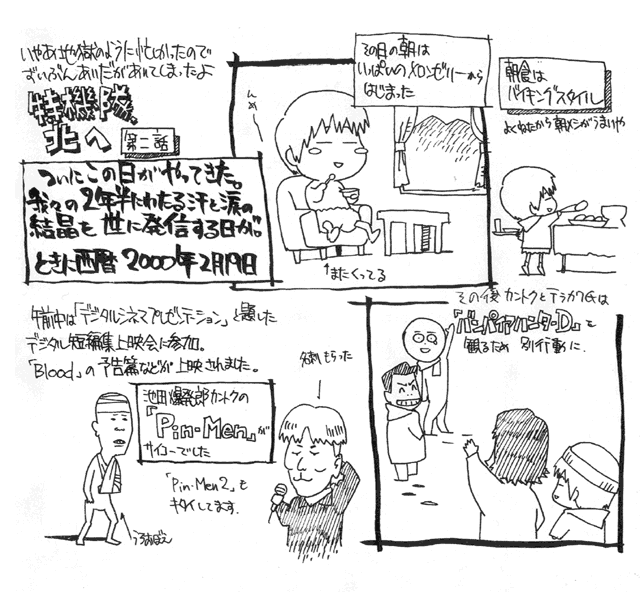 いやあ地獄のように忙しかったので
ずいぶんあいだがあいてしまったよ
特機隊、
北へ
第二話
ついにこの日がやってきた。
我々の2年半にわたる汗と涙の
結晶を世に発信する日が。
ときに西暦2000年2月19日
その日の朝は
いっぱいのメロンゼリーから
はじまった
んめー
↑またくってる
朝食は
バイキングスタイル
よくねたから朝メシがうまいや
午前中は「デジタルシネマプレゼンテーション」と題した
デジタル短編集上映会に参加。
「Blood」の予告篇などが上映されました。
池田爆発郎カントクの
「Pin-Men」が
サイコーでした
「Pin-Men2」も
キタイしてます。
うろおぼえ
名刺もらった
その後カントクとテラカワ氏は
「バンパイアハンターD」を
観るため別行動に.